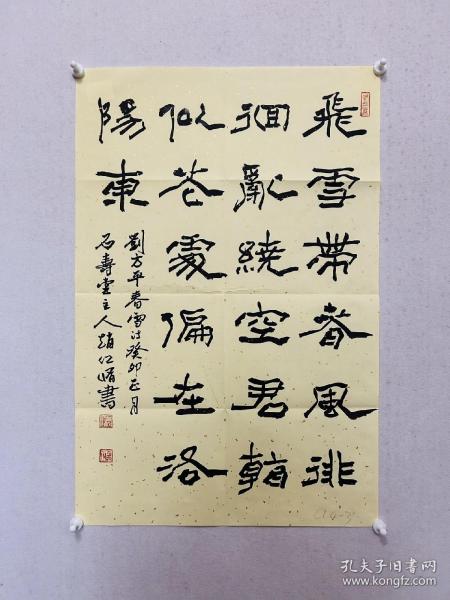 飛雪帶春風徘
徊亂繞空君看
似花處偏在洛
陽東
劉方平春雪诗癸卯正月
石壽堂主人趙書
孔夫子旧书网
www.kongfz.com